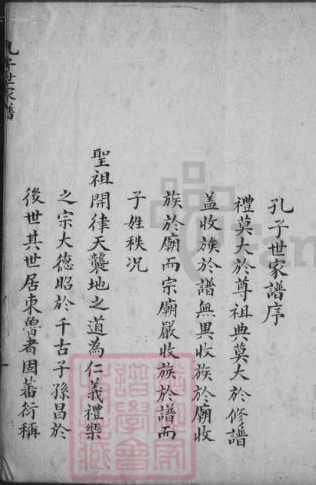 孔子世家譜序
禮莫大於尊祖典莫大於修譜
蓋收族於譜無異收族於廟收
族於廟而宗廟嚴收族於譜而
子姓秩况
聖祖開律天襲地之道為仁義禮樂
之宗大德昭於千古子孫昌於
後世其世居東魯者固蕃衍稱
孔子世家譜